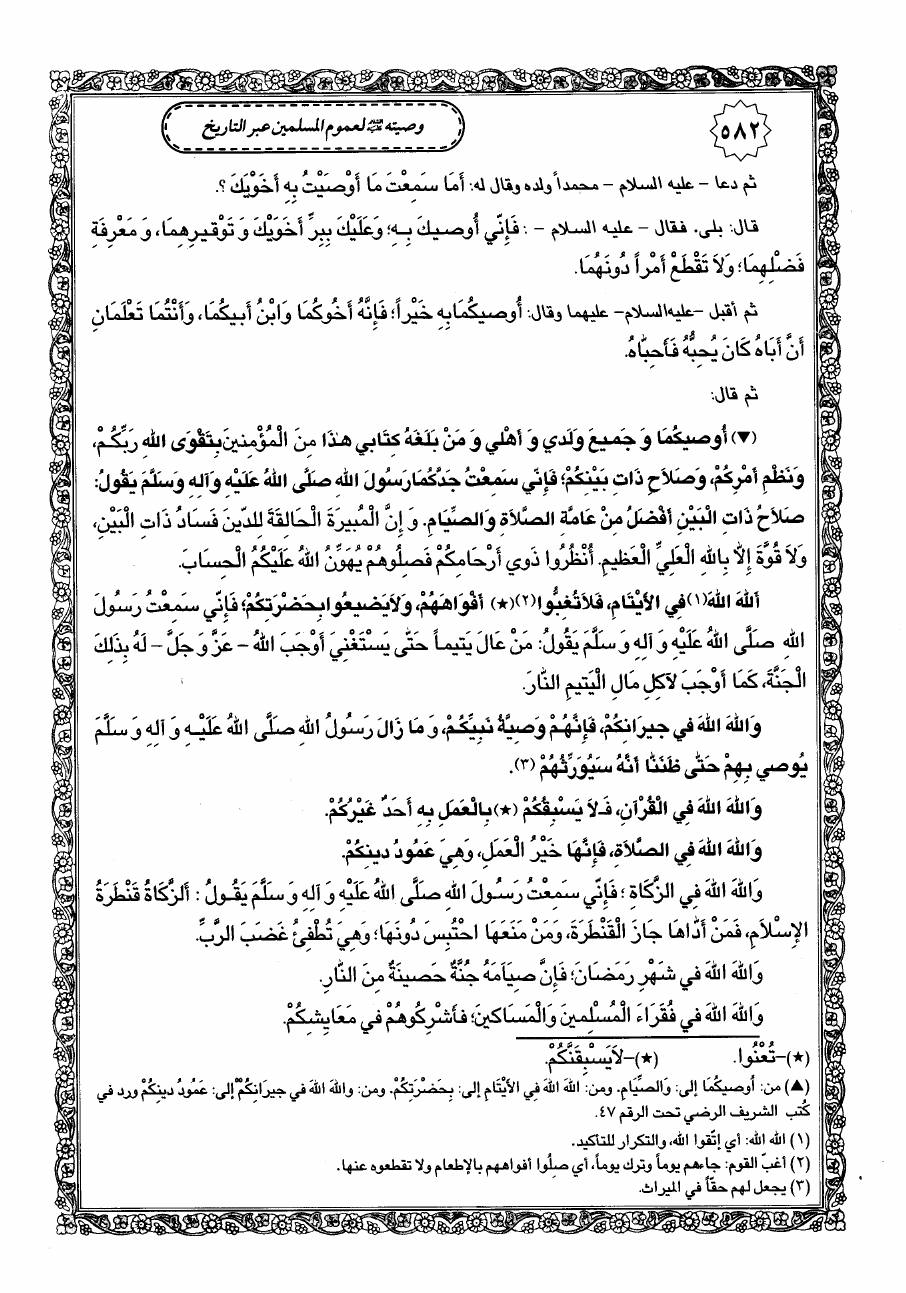 ٥٨٢
وصيته عليه السلام لعموم المسلمين عبر التاريخ
ثم دعا - عليه السلام - محمداً ولده وقال له: أَمَا سَمِعْتَ مَا أَوْصَيْتُ بِهِ أَخَوَيْكَ ؟.
قال: بلى. فقال - عليه السلام - : فَإِنّي أُوصيكَ بِهِ؛ وَعَلَيْكَ بِبِرِّ أَخَوَيْكَ وَ تَوْقيرِهِمَا، وَ مَعْرِفَةِ
فَضْلِهِمَا؛ وَلاَ تَقْطَعْ أَمْراً دُونَهُمَا.
ثم أقبل -عليه السلام- عليهما وقال: أُوصيكُمَا بِهِ خَيْراً؛ فَإِنَّهُ أَخُوكُمَا وَابْنُ أَبيكُمَا، وَأَنْتُمَا تَعْلَمَانِ
أَنَّ أَبَاهُ كَانَ يُحِبُّهُ فَأَحِبَّاهُ.
ثم قال:
(▼) أُوصيكُمَا وَ جَميعَ وَلَدي وَ أَهْلي وَ مَنْ بَلَغَهُ كِتَابي هٰذَا مِنَ الْمُؤْمِنينَ بِتَقْوَى اللهِ رَبِّكُمْ،
وَنَظْمِ أَمْرِكُمْ، وَصَلاَحِ ذَاتِ بَيْنِكُمْ؛ فَإِنّي سَمِعْتُ جَدَّكُمَا رَسُولَ اللهِ صَلَّى اللهُ عَلَيْهِ وَآلِهِ وَسَلَّمَ يَقُولُ:
صَلاَحُ ذَاتِ الْبَيْنِ أَفْضَلُ مِنْ عَامَّةِ الصَّلاَةِ وَالصِّيَامِ. وَ إِنَّ الْمُبيرَةَ الْحَالِقَةَ لِلدّينِ فَسَادُ ذَاتِ الْبَيْنِ،
وَلاَ قُوَّةَ إِلاَّ بِاللهِ الْعَلِيِّ الْعَظيمِ. أُنْظُرُوا ذَوي أَرْحَامِكُمْ فَصِلُوهُمْ يُهَوِّنُ اللهُ عَلَيْكُمُ الْحِسَابَ.
أَللهَ اللهَ(١) فِي الأَيْتَامِ، فَلاَ تُغِبُّوا(٢)(★) أَفْوَاهَهُمْ، وَلاَ يَضيعُوا بِحَضْرَتِكُمْ؛ فَإِنّي سَمِعْتُ رَسُولَ
اللهِ صَلَّى اللهُ عَلَيْهِ وَ آلِهِ وَ سَلَّمَ يَقُولُ: مَنْ عَالَ يَتيماً حَتّٰى يَسْتَغْنِيَ أَوْجَبَ اللهُ - عَزَّ وَ جَلَّ - لَهُ بِذَلِكَ
الْجَنَّةَ، كَمَا أَوْجَبَ لآكِلِ مَالِ الْيَتيمِ النَّارَ.
وَاللهَ اللهَ في جيرَانِكُمْ، فَإِنَّهُمْ وَصِيَّةُ نَبِيِّكُمْ، وَ مَا زَالَ رَسُولُ اللهِ صَلَّى اللهُ عَلَيْهِ وَ آلِهِ وَ سَلَّمَ
يُوصي بِهِمْ حَتّٰى ظَنَنَّا أَنَّهُ سَيُوَرِّثُهُمْ (٣).
وَاللهَ اللهَ فِي الْقُرْآنِ، فَلاَ يَسْبِقُكُمْ (★) بِالْعَمَلِ بِهِ أَحَدٌ غَيْرُكُمْ.
وَاللهَ اللهَ فِي الصَّلاَةِ، فَإِنَّهَا خَيْرُ الْعَمَلِ، وَهِيَ عَمُودُ دينِكُمْ.
وَاللهَ اللهَ فِي الزَّكَاةِ ؛ فَإِنّي سَمِعْتُ رَسُولَ اللهِ صَلَّى اللهُ عَلَيْهِ وَ آلِهِ وَ سَلَّمَ يَقُولُ : أَلزَّكَاةُ قَنْطَرَةُ
الإِسْلاَمِ، فَمَنْ أَدَّاهَا جَازَ الْقَنْطَرَةَ، وَمَنْ مَنَعَهَا احْتُبِسَ دُونَهَا؛ وَهِيَ تُطْفِئُ غَضَبَ الرَّبِّ.
وَاللهَ اللهَ في شَهْرِ رَمَضَانَ؛ فَإِنَّ صِيَامَهُ جُنَّةٌ حَصينَةٌ مِنَ النَّارِ.
وَاللهَ اللهَ في فُقَرَاءِ الْمُسْلِمينَ وَالْمَسَاكينِ؛ فَأَشْرِكُوهُمْ في مَعَايِشِكُمْ.
(★)-تُعْنُوا. (★)-لاَيَسْبِقَنَّكُمْ.
(▲) من: أُوصيكُمَا إلى: وَالصِّيَامِ. ومن: اللهَ اللهَ فِي الأَيْتَامِ إلى: بِحَضْرَتِكُمْ. ومن: وَاللهَ اللهَ في جيرَانِكُمْ إلى: عَمُودُ دينِكُمْ ورد في
كُتب الشريف الرضي تحت الرقم ٤٧.
(١) الله الله: أي إتّقوا الله، والتكرار للتأكيد.
(٢) أغبّ القوم: جاءهم يوماً وترك يوماً، أي صِلُوا أفواههم بالإطعام ولا تقطعوه عنها.
(٣) يجعل لهم حقّاً في الميراث.